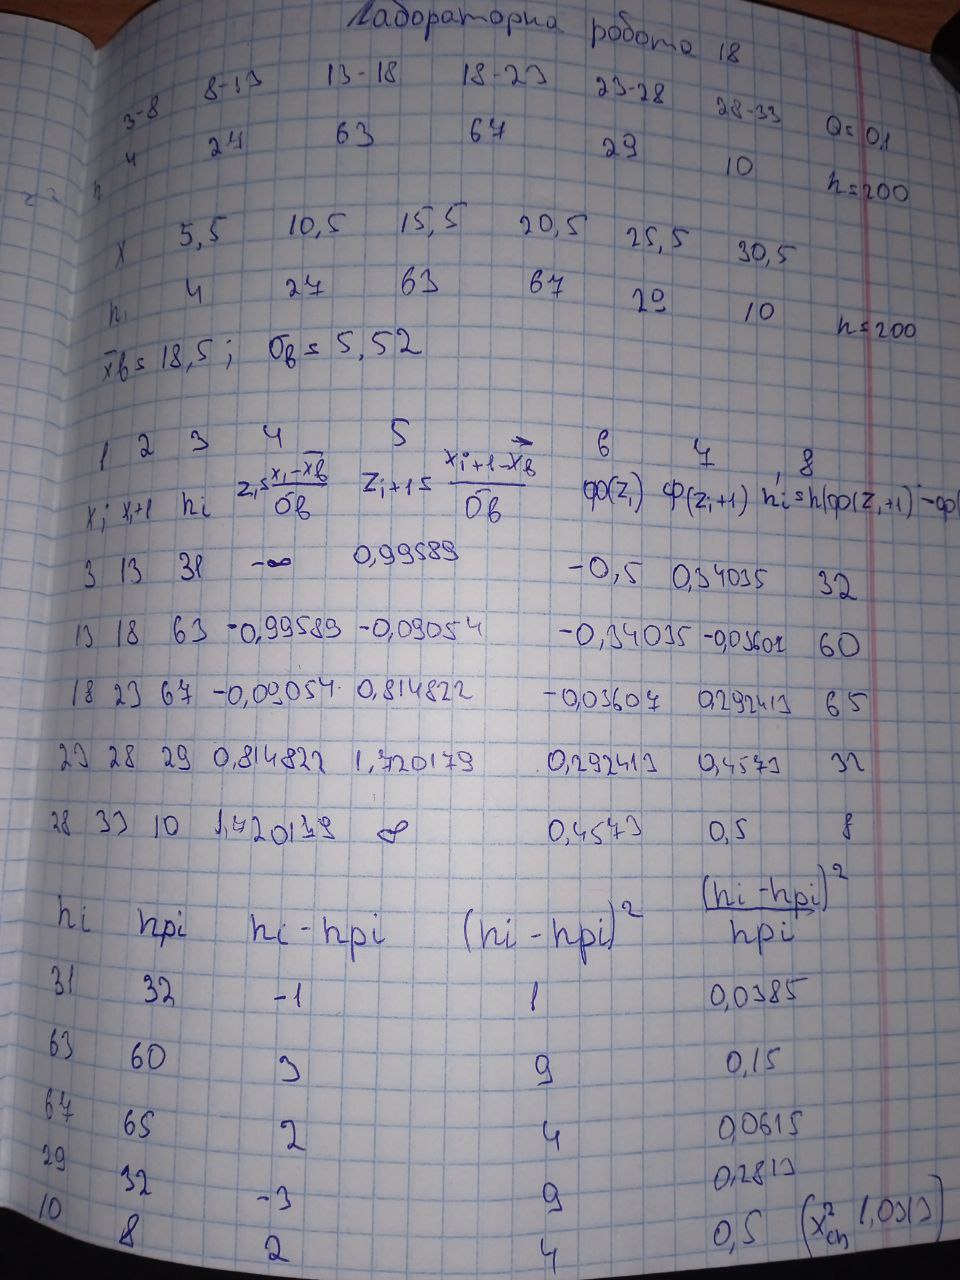 Лабораторна робота 18
3-8 8-13 13-18 18-23 23-28 28-33 Q=0,1
n 4 27 63 67 29 10 n=200
x 5,5 10,5 15,5 20,5 25,5 30,5
n, 4 27 63 67 29 10 n=200
x̄в = 18,5; σв = 5,52
1 2 3 4 5 6 7 8
xi xi+1 ni zi=(xi-x̄в)/σв Zi+1=(xi+1-x̄в)/σв Ф(zi) Ф(zi+1) n'i=n(Ф(zi+1)-Ф(
3 13 31 -∞ 0,99589 -0,5 0,34035 32
13 18 63 -0,99589 -0,09054 -0,34035 -0,03607 60
18 23 67 -0,09054 0,814822 -0,03607 0,292413 65
23 28 29 0,814822 1,720179 0,292413 0,4573 32
28 33 10 1,720179 ∞ 0,4573 0,5 8
ni npi ni - npi (ni - npi)² (ni - npi)²/npi
31 32 -1 1 0,0385
63 60 3 9 0,15
67 65 2 4 0,0615
29 32 -3 9 0,2813
10 8 2 4 0,5 (x²сп 1,0313)